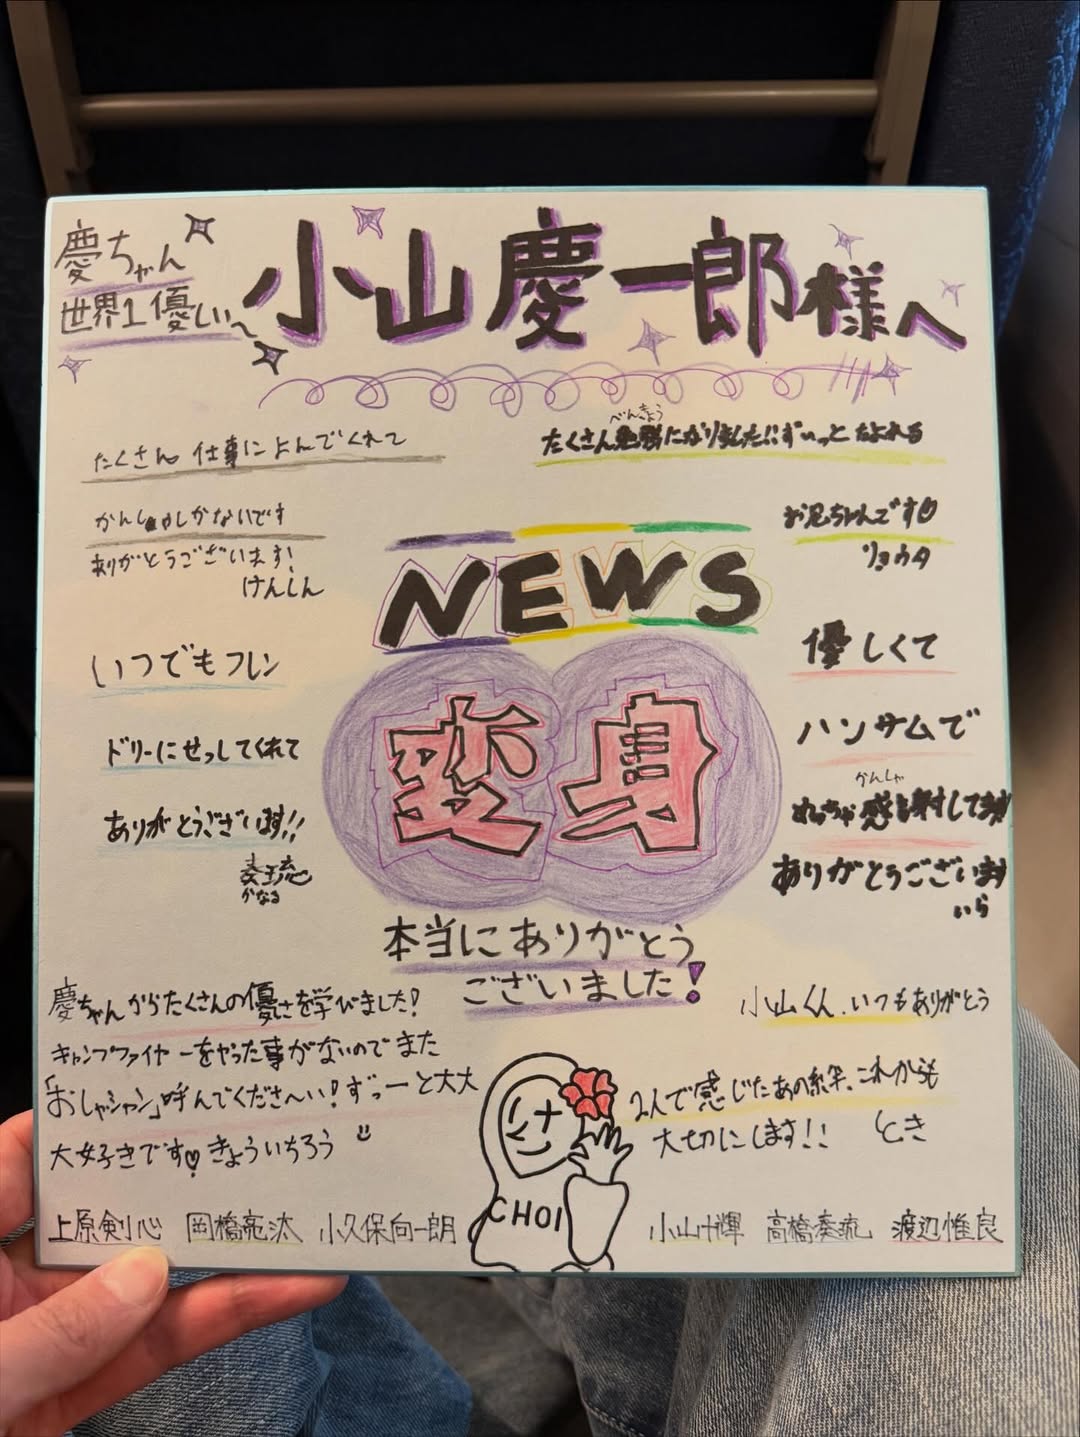 慶ちゃん
世界1優しい〜
小山慶一郎様へ
たくさん仕事によんでくれて
かんしゃしかないです
ありがとうございます!
けんしん
べんきょう
たくさん勉強になりました!!ずぃっとたよれる
お兄ちゃんです♡
リョウタ
NEWS
変身
いつでもフレン
ドリーにせっしてくれて
ありがとうございます!!
奏琉
かなる
優しくて
ハンサムで
かんしゃ
めっちゃ感謝してます
ありがとうございます
いら
本当にありがとう
ございました!
慶ちゃんからたくさんの優しさを学びました!
キャンプファイヤーをやった事がないのでまた
「おしゃシャン」呼んでくださ〜い!ずっーと大大
大好きです♡きょういちろう
小山くん、いつもありがとう
2人で感じたあの絆、これからも
大切にします!!
とき
CHOI
上原剣心 岡橋亮汰 小久保向一朗
小山十輝 高橋奏琉 渡辺惟良